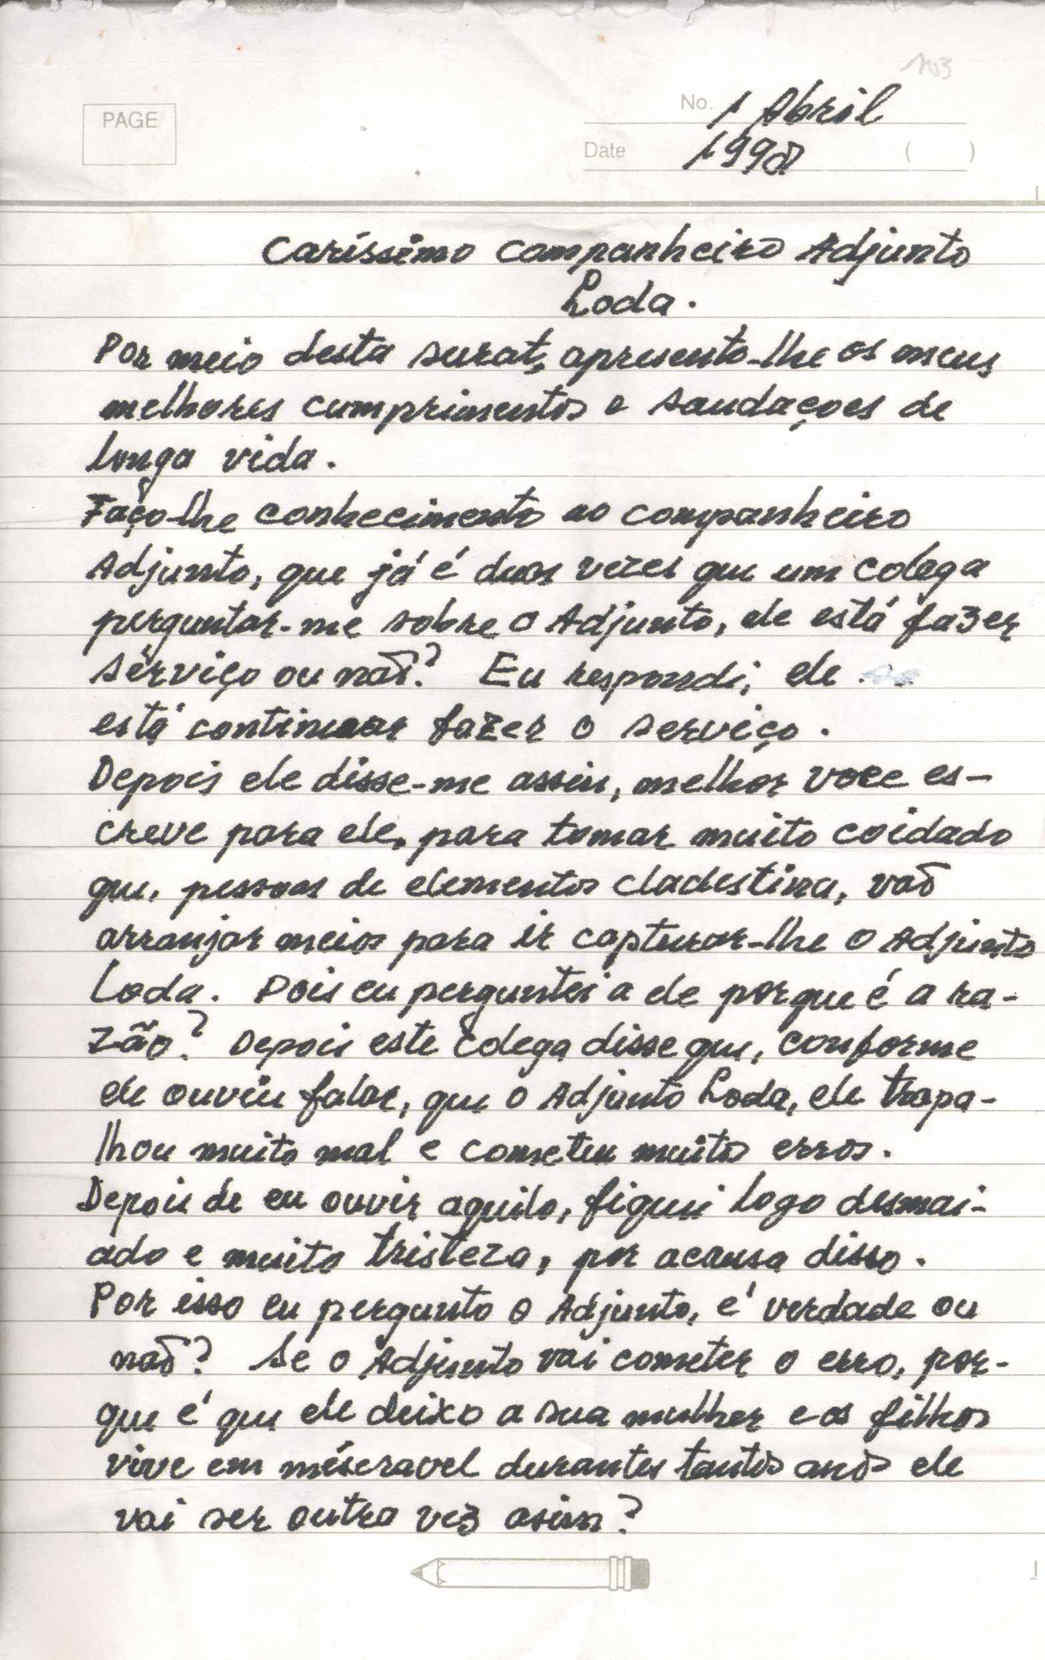 103
PAGE
No. 1 Abril
Date 1998 ( )
Caríssimo Companheiro Adjunto
Loda.
Por meio desta surat, apresento-lhe os meus
melhores cumprimentos e saudaçoes de
longa vida.
Faço-lhe conhecimento ao companheiro
Adjunto, que já é duas vezes que um colega
perguntar-me sobre o Adjunto, ele está fazer
serviço ou naõ? Eu respondi; ele
está continuar fazer o serviço.
Depois ele disse-me assim, melhor voce es-
creve para ele, para tomar muito coidado
que, pessoas de elementos cladestina, vaõ
arranjar meios para ir capturar-lhe o Adjunto
Loda. Pois eu perguntei a ele porque é a ra-
zão? Depois este colega disse que, conforme
ele ouviu falar, que o Adjunto Loda, ele trapa-
lhou muito mal e cometeu muitos erros.
Depois de eu ouvir aquilo, fiquei logo desmai-
ado e muito tristeza, por acausa disso.
Por isso eu pergunto o Adjunto, é verdade ou
naõ? Se o Adjunto vai cometer o erro, por-
que é que ele deixo a sua mulher e os filhos
vive em miseravel durantes tantos anos ele
vai ser outra vez asim?